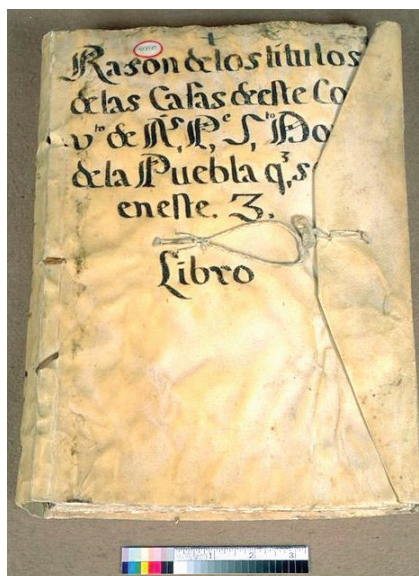 Rason de los titulos
de las Casas de este Co
vᵗᵒ de N,ˢ P,ᵉ S,ᵗᵒ Do
de la Puebla q,³ s
en este. 3.
Libro
1 2 3